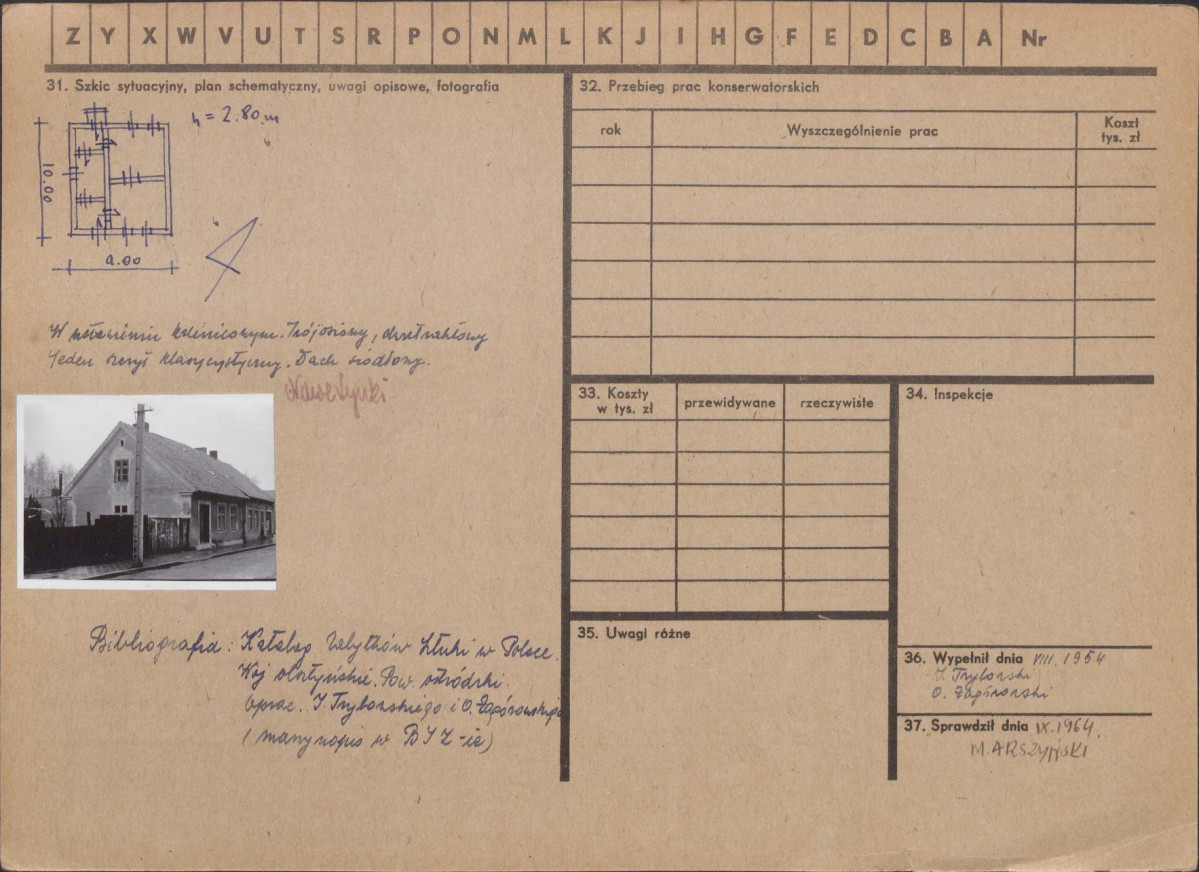 Z Y X W V U T S R P O N M L K J I H G F E D C B A Nr
31. Szkic sytuacyjny, plan schematyczny, uwagi opisowe, fotografia
h = 2.80 m
10.00
9.00
Trójosiowy, dwutraktowy
Jeden szczyt klasycystyczny. Dach siodłowy.
Bibliografia: Katalog Zabytków Sztuki w Polsce.
Woj olsztyńskie. Pow. ostródzki.
Oprac. J. Tryborskiego i O. Zagórowskiego
(maszynopis w
32. Przebieg prac konserwatorskich
rok
Wyszczególnienie prac
Koszt
tys. zł
33. Koszty
w tys. zł
przewidywane
rzeczywiste
34. Inspekcje
35. Uwagi różne
36. Wypełnił dnia VIII. 1954
O. Zagórowski
37. Sprawdził dnia IX. 1964
M. ARSZYŃSKI